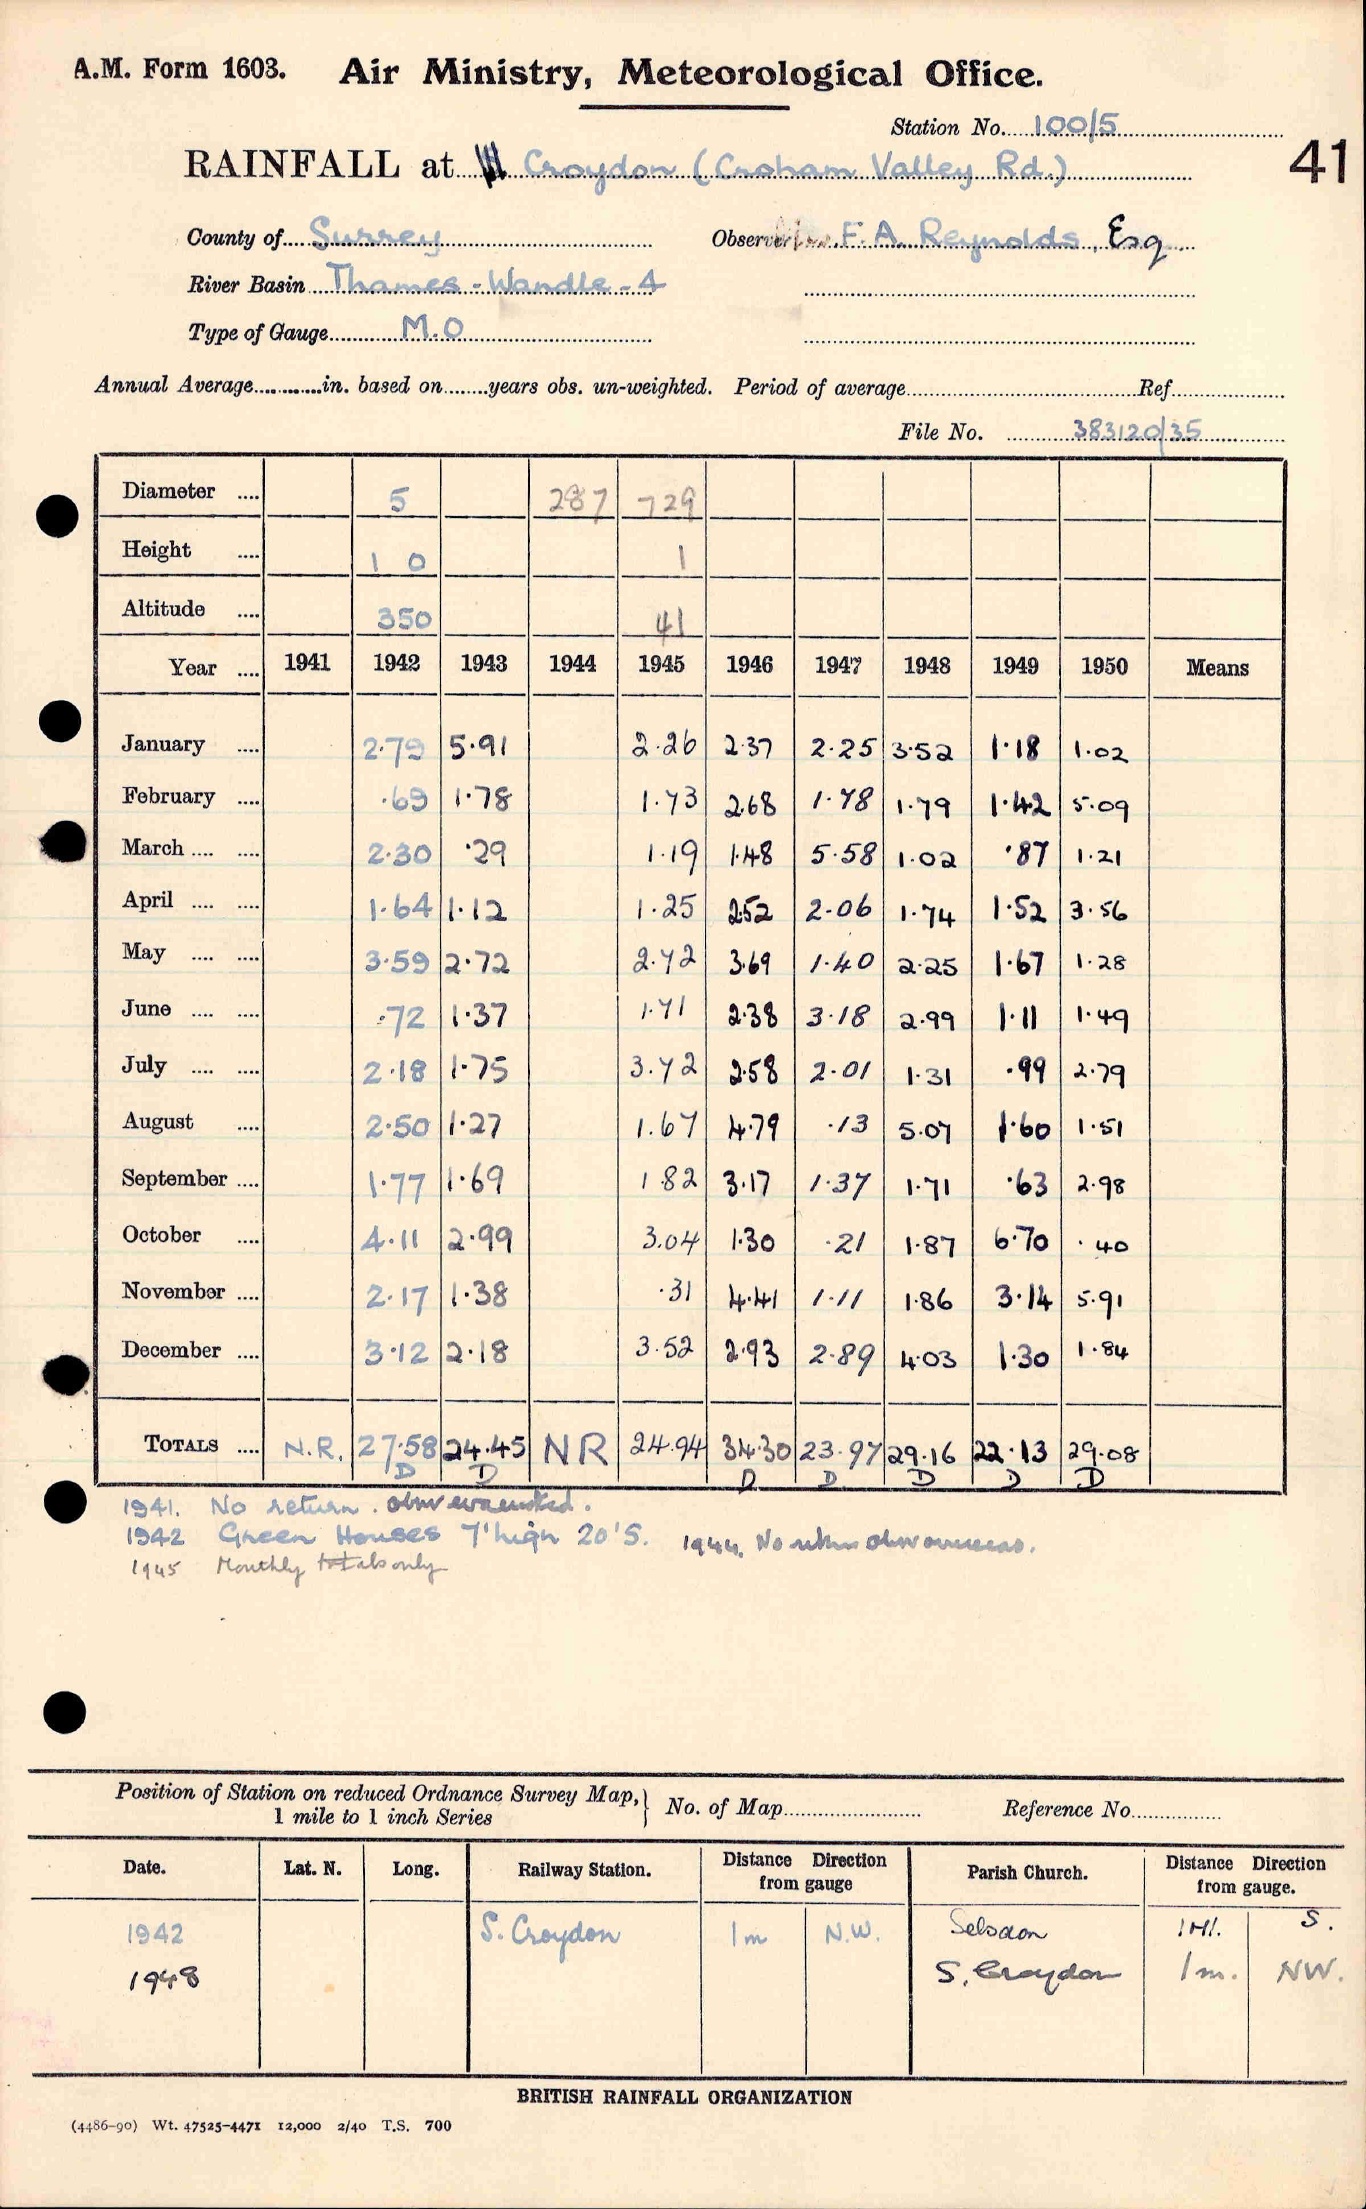 A.M. Form 1603. Air Ministry, Meteorological Office.
Station No. 100/5
41
RAINFALL at Croydon (Croham Valley Rd.)
County of Surrey Observer F. A. Reynolds, Esq
River Basin Thames - Wandle - 4
Type of Gauge M.O
Annual Average in. based on years obs. un-weighted. Period of average Ref
File No. 383120/35
Diameter 5 287 729
Height 1 0 1
Altitude 350 41
Year 1941 1942 1943 1944 1945 1946 1947 1948 1949 1950 Means
January 2.79 5.91 2.26 2.37 2.25 3.52 1.18 1.02
February .69 1.78 1.73 2.68 1.78 1.79 1.42 5.09
March 2.30 .29 1.19 1.48 5.58 1.02 .87 1.21
April 1.64 1.12 1.25 2.52 2.06 1.74 1.52 3.56
May 3.59 2.72 2.72 3.69 1.40 2.25 1.67 1.28
June .72 1.37 1.71 2.38 3.18 2.99 1.11 1.49
July 2.18 1.75 3.72 2.58 2.01 1.31 .99 2.79
August 2.50 1.27 1.67 4.79 .13 5.07 1.60 1.51
September 1.77 1.69 1.82 3.17 1.37 1.71 .63 2.98
October 4.11 2.99 3.04 1.30 .21 1.87 6.70 .40
November 2.17 1.38 .31 4.41 1.11 1.86 3.14 5.91
December 3.12 2.18 3.52 2.93 2.89 4.03 1.30 1.84
TOTALS N.R. 27.58 24.45 NR 24.94 34.30 23.97 29.16 22.13 29.08
D D D D D D D
1941. No return. obsr evacuated.
1942 Green Houses 7' high 20'S. 1944. No return obsr overseas.
1945 Monthly totals only
Position of Station on reduced Ordnance Survey Map, 1 mile to 1 inch Series } No. of Map Reference No.
Date. Lat. N. Long. Railway Station. Distance Direction from gauge Parish Church. Distance Direction from gauge.
1942 S. Croydon 1m N.W. Selsdon 1M. S.
1948 S. Croydon 1m. NW.
BRITISH RAINFALL ORGANIZATION
(4486-90) Wt. 47525-4471 12,000 2/40 T.S. 700